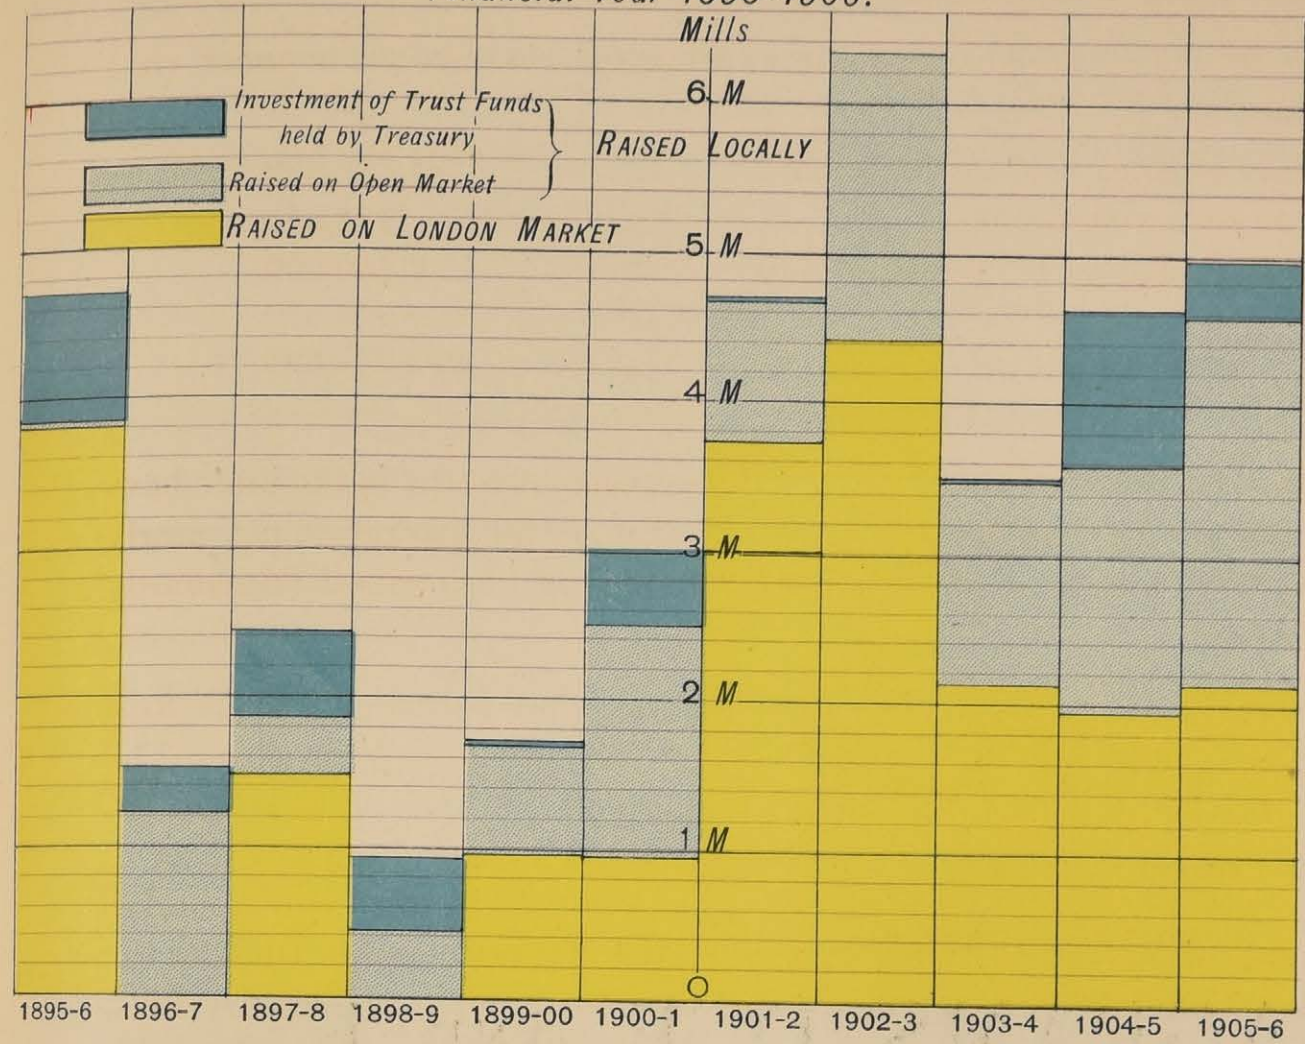 Mills
6 M
Investment of Trust Funds
held by Treasury
RAISED LOCALLY
Raised on Open Market
RAISED ON LONDON MARKET
5 M
4 M
3 M
2 M
1 M
0
1895-6 1896-7 1897-8 1898-9 1899-00 1900-1 1901-2 1902-3 1903-4 1904-5 1905-6